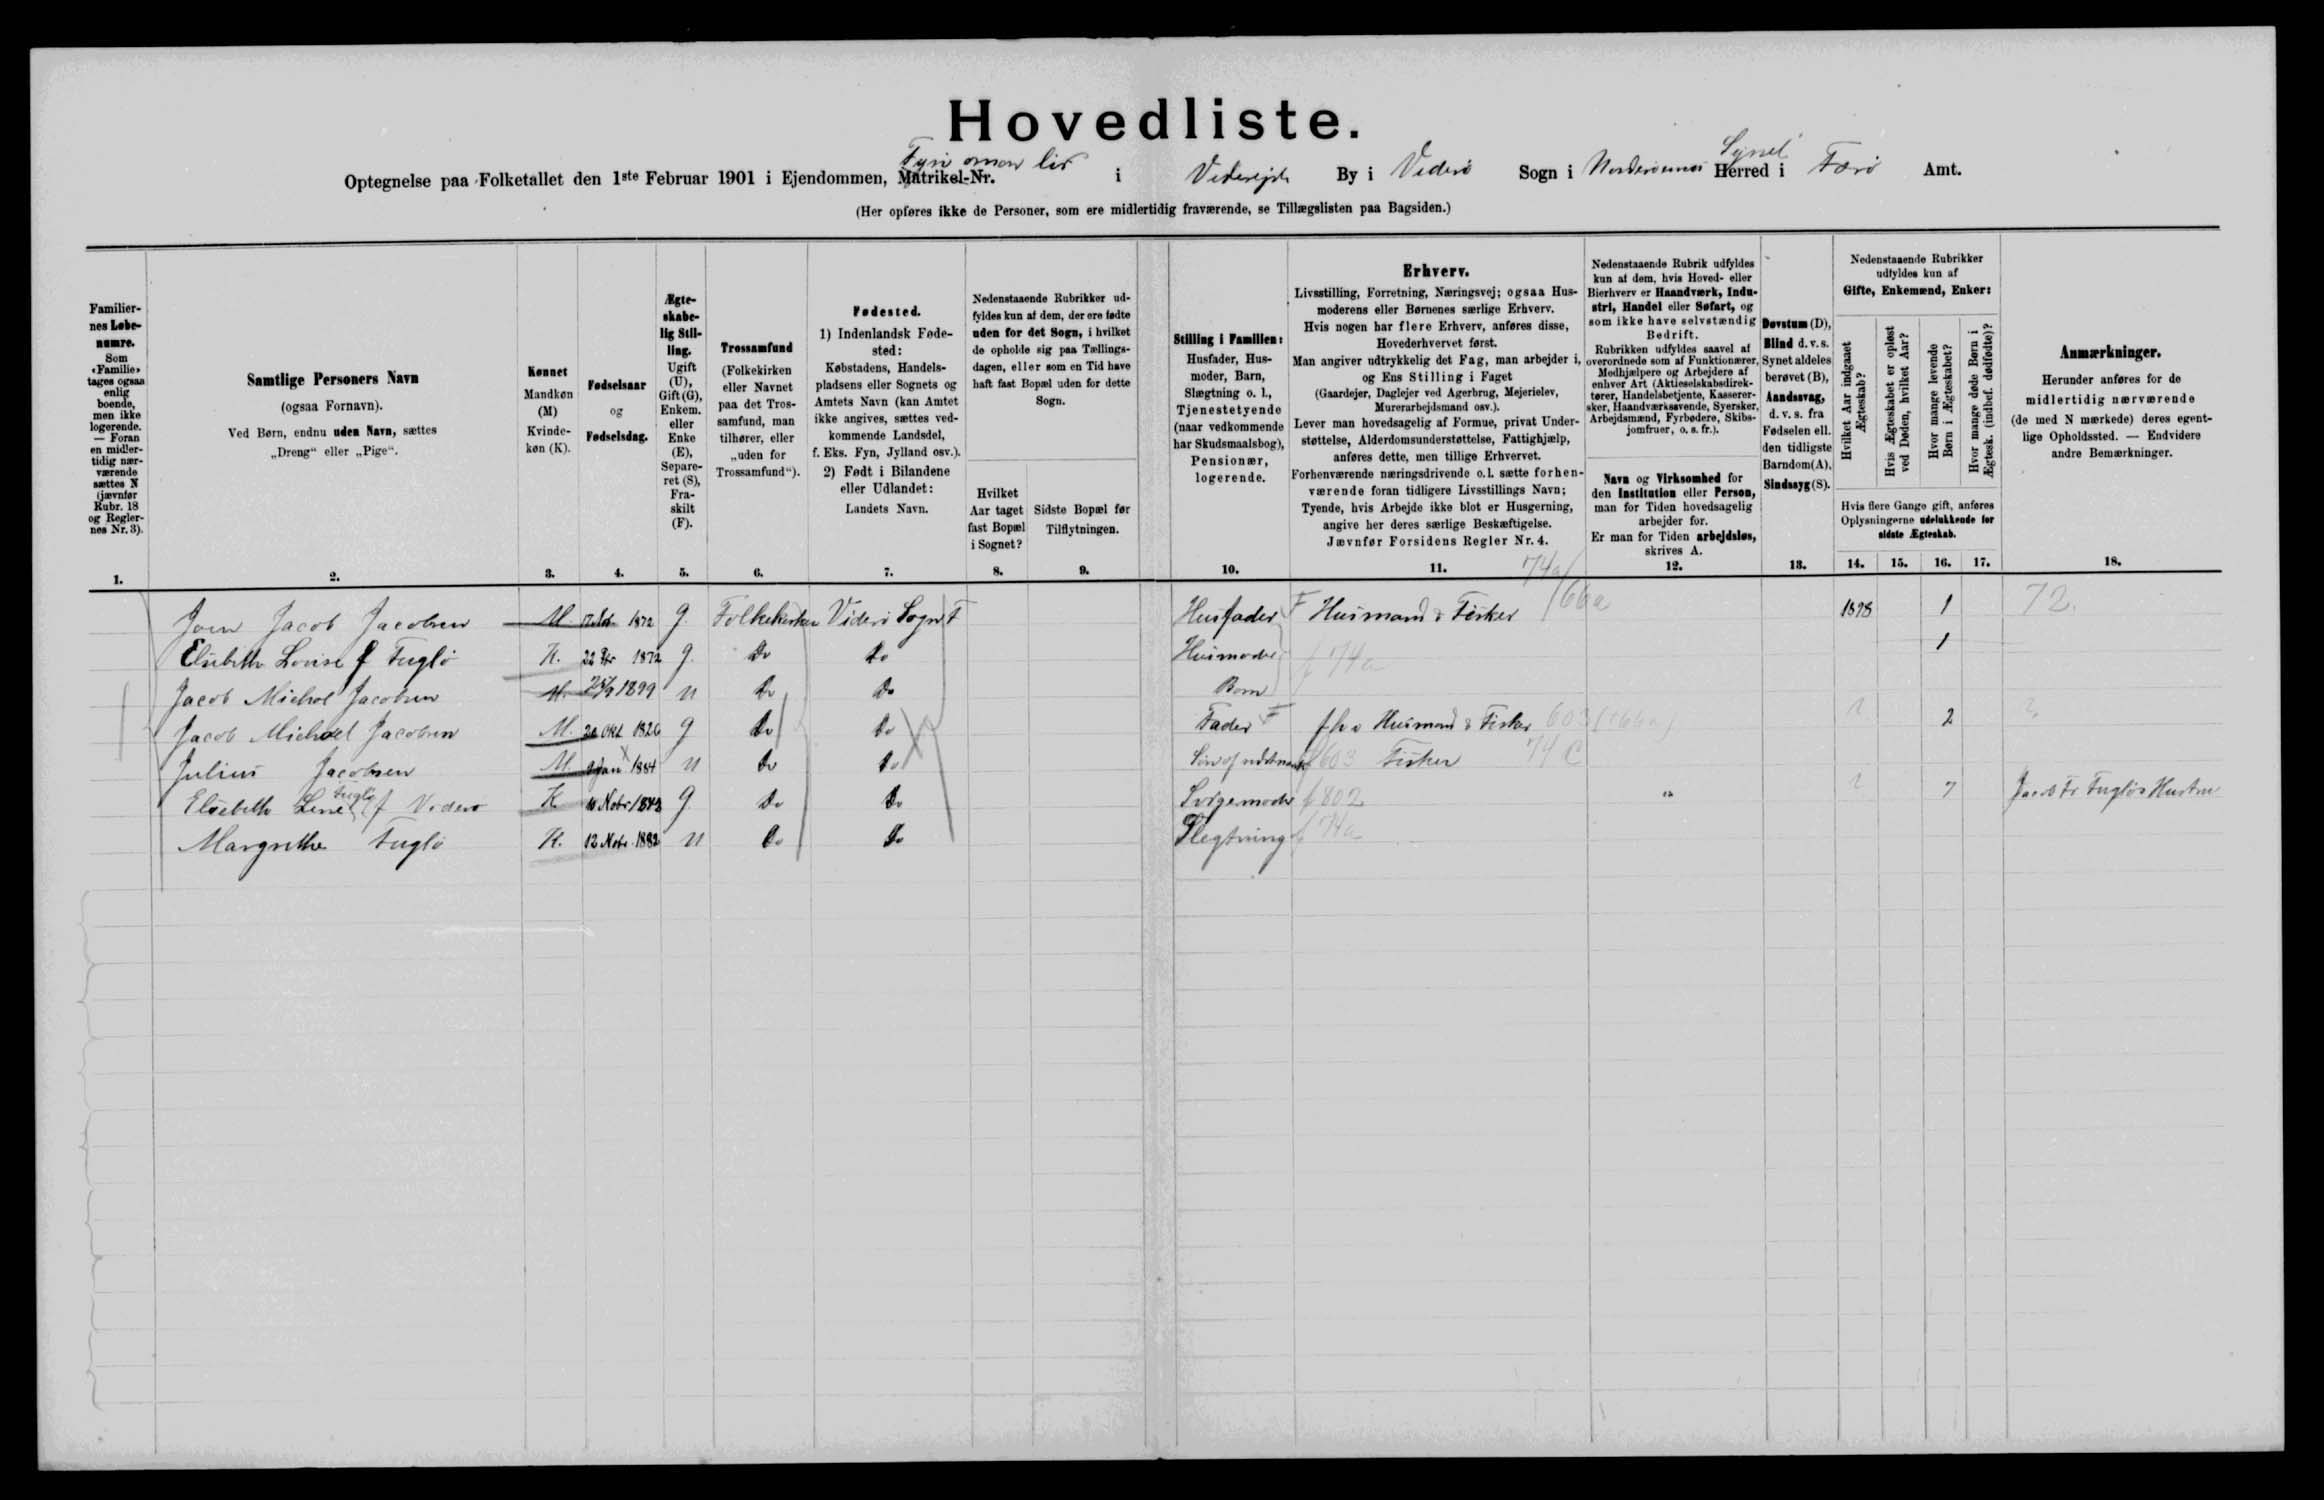 Hovedliste.
Fyri oman lid Syssel
Optegnelse paa Folketallet den 1ste Februar 1901 i Ejendommen, Matrikel-Nr. i Viderejde By i Viderö Sogn i Norderöernes Herred i Færö Amt.
(Her opføres ikke de Personer, som ere midlertidig fraværende, se Tillægslisten paa Bagsiden.)
Familier-
nes Løbe-
numre.
Som
«Familie»
tages ogsaa
enlig
boende,
men ikke
logerende.
— Foran
en midler-
tidig nær-
værende
sættes N
(jævnfør
Rubr. 18
og Regler-
nes Nr. 3).
1.
Samtlige Personers Navn
(ogsaa Fornavn).
Ved Børn, endnu uden Navn, sættes
„Dreng“ eller „Pige“.
2.
Kønnet
Mandkøn
(M)
Kvinde-
køn (K).
3.
Fødselsaar
og
Fødselsdag.
4.
Ægte-
skabe-
lig Stil-
ling.
Ugift
(U),
Gift (G),
Enkem.
eller
Enke
(E),
Separe-
ret (S),
Fra-
skilt
(F).
5.
Trossamfund
(Folkekirken
eller Navnet
paa det Tros-
samfund, man
tilhører, eller
„uden for
Trossamfund“).
6.
Fødested.
1) Indenlandsk Føde-
sted:
Købstadens, Handels-
pladsens eller Sognets og
Amtets Navn (kan Amtet
ikke angives, sættes ved-
kommende Landsdel,
f. Eks. Fyn, Jylland osv.).
2) Født i Bilandene
eller Udlandet:
Landets Navn.
7.
Nedenstaaende Rubrikker ud-
fyldes kun af dem, der ere fødte
uden for det Sogn, i hvilket
de opholde sig paa Tællings-
dagen, eller som en Tid have
haft fast Bopæl uden for dette
Sogn.
Hvilket
Aar taget
fast Bopæl
i Sognet?
8.
Sidste Bopæl før
Tilflytningen.
9.
Stilling i Familien:
Husfader, Hus-
moder, Barn,
Slægtning o. l.,
Tjenestetyende
(naar vedkommende
har Skudsmaalsbog),
Pensionær,
logerende.
10.
Erhverv.
Livsstilling, Forretning, Næringsvej; ogsaa Hus-
moderens eller Børnenes særlige Erhverv.
Hvis nogen har flere Erhverv, anføres disse,
Hovederhvervet først.
Man angiver udtrykkelig det Fag, man arbejder i,
og Ens Stilling i Faget
(Gaardejer, Daglejer ved Agerbrug, Mejerielev,
Murerarbejdsmand osv.).
Lever man hovedsagelig af Formue, privat Under-
støttelse, Alderdomsunderstøttelse, Fattighjælp,
anføres dette, men tillige Erhvervet.
Forhenværende næringsdrivende o. l. sætte forhen-
værende foran tidligere Livsstillings Navn;
Tyende, hvis Arbejde ikke blot er Husgerning,
angive her deres særlige Beskæftigelse.
Jævnfør Forsidens Regler Nr. 4.
11.
Nedenstaaende Rubrik udfyldes
kun af dem, hvis Hoved- eller
Bierhverv er Haandværk, Indu-
stri, Handel eller Søfart, og
som ikke have selvstændig
Bedrift.
Rubrikken udfyldes saavel af
overordnede som af Funktionærer,
Medhjælpere og Arbejdere af
enhver Art (Aktieselskabsdirek-
tører, Handelsbetjente, Kasserer-
sker, Haandværkssvende, Syersker,
Arbejdsmænd, Fyrbødere, Skibs-
jomfruer, o. s. fr.).
Navn og Virksomhed for
den Institution eller Person,
man for Tiden hovedsagelig
arbejder for.
Er man for Tiden arbejdsløs,
skrives A.
12.
Døvstum (D),
Blind d. v. s.
Synet aldeles
berøvet (B),
Aandssvag,
d. v. s. fra
Fødselen ell.
den tidligste
Barndom (A),
Sindssyg (S).
13.
Nedenstaaende Rubrikker
udfyldes kun af
Gifte, Enkemænd, Enker:
Hvilket Aar indgaaet
Ægteskab?
Hvis Ægteskabet er opløst
ved Døden, hvilket Aar?
Hvor mange levende
Børn i Ægteskabet?
Hvor mange døde Børn i
Ægtesk. (indbef. dødfødte)?
Hvis flere Gange gift, anføres
Oplysningerne udelukkende for
sidste Ægteskab.
14. 15. 16. 17.
Anmærkninger.
Herunder anføres for de
midlertidig nærværende
(de med N mærkede) deres egent-
lige Opholdssted. — Endvidere
andre Bemærkninger.
18.
74a/66a
Joen Jacob Jacobsen M. 1872 g. Folkekirken Viderö Sogn F Husfader F Husmand & Fisker 1898 1 72.
Elsebeth Lovise f Fuglö K. 22 1872 g. Do Do Husmoder f 74a 1
Jacob Michael Jacobsen M. 1899 U Do Do Barn
Jacob Michael Jacobsen M. 20 Okt 1826 g Do Do Fader F f.h.v Husmand & Fisker 603 (+66a) 2
Julius Jacobsen M. Jan 1884 U Do Do Sön af f 603 Fisker 74 C
Elsebeth Lene Fuglö f Viderö K 10 Nobr 1843 g. Do Do Svigemoder f 802 7 Jacob Fr Fuglös Hustru
Margrethe Fuglö K. 12 Nobr. 1882 U Do Do Slegtning f 74a